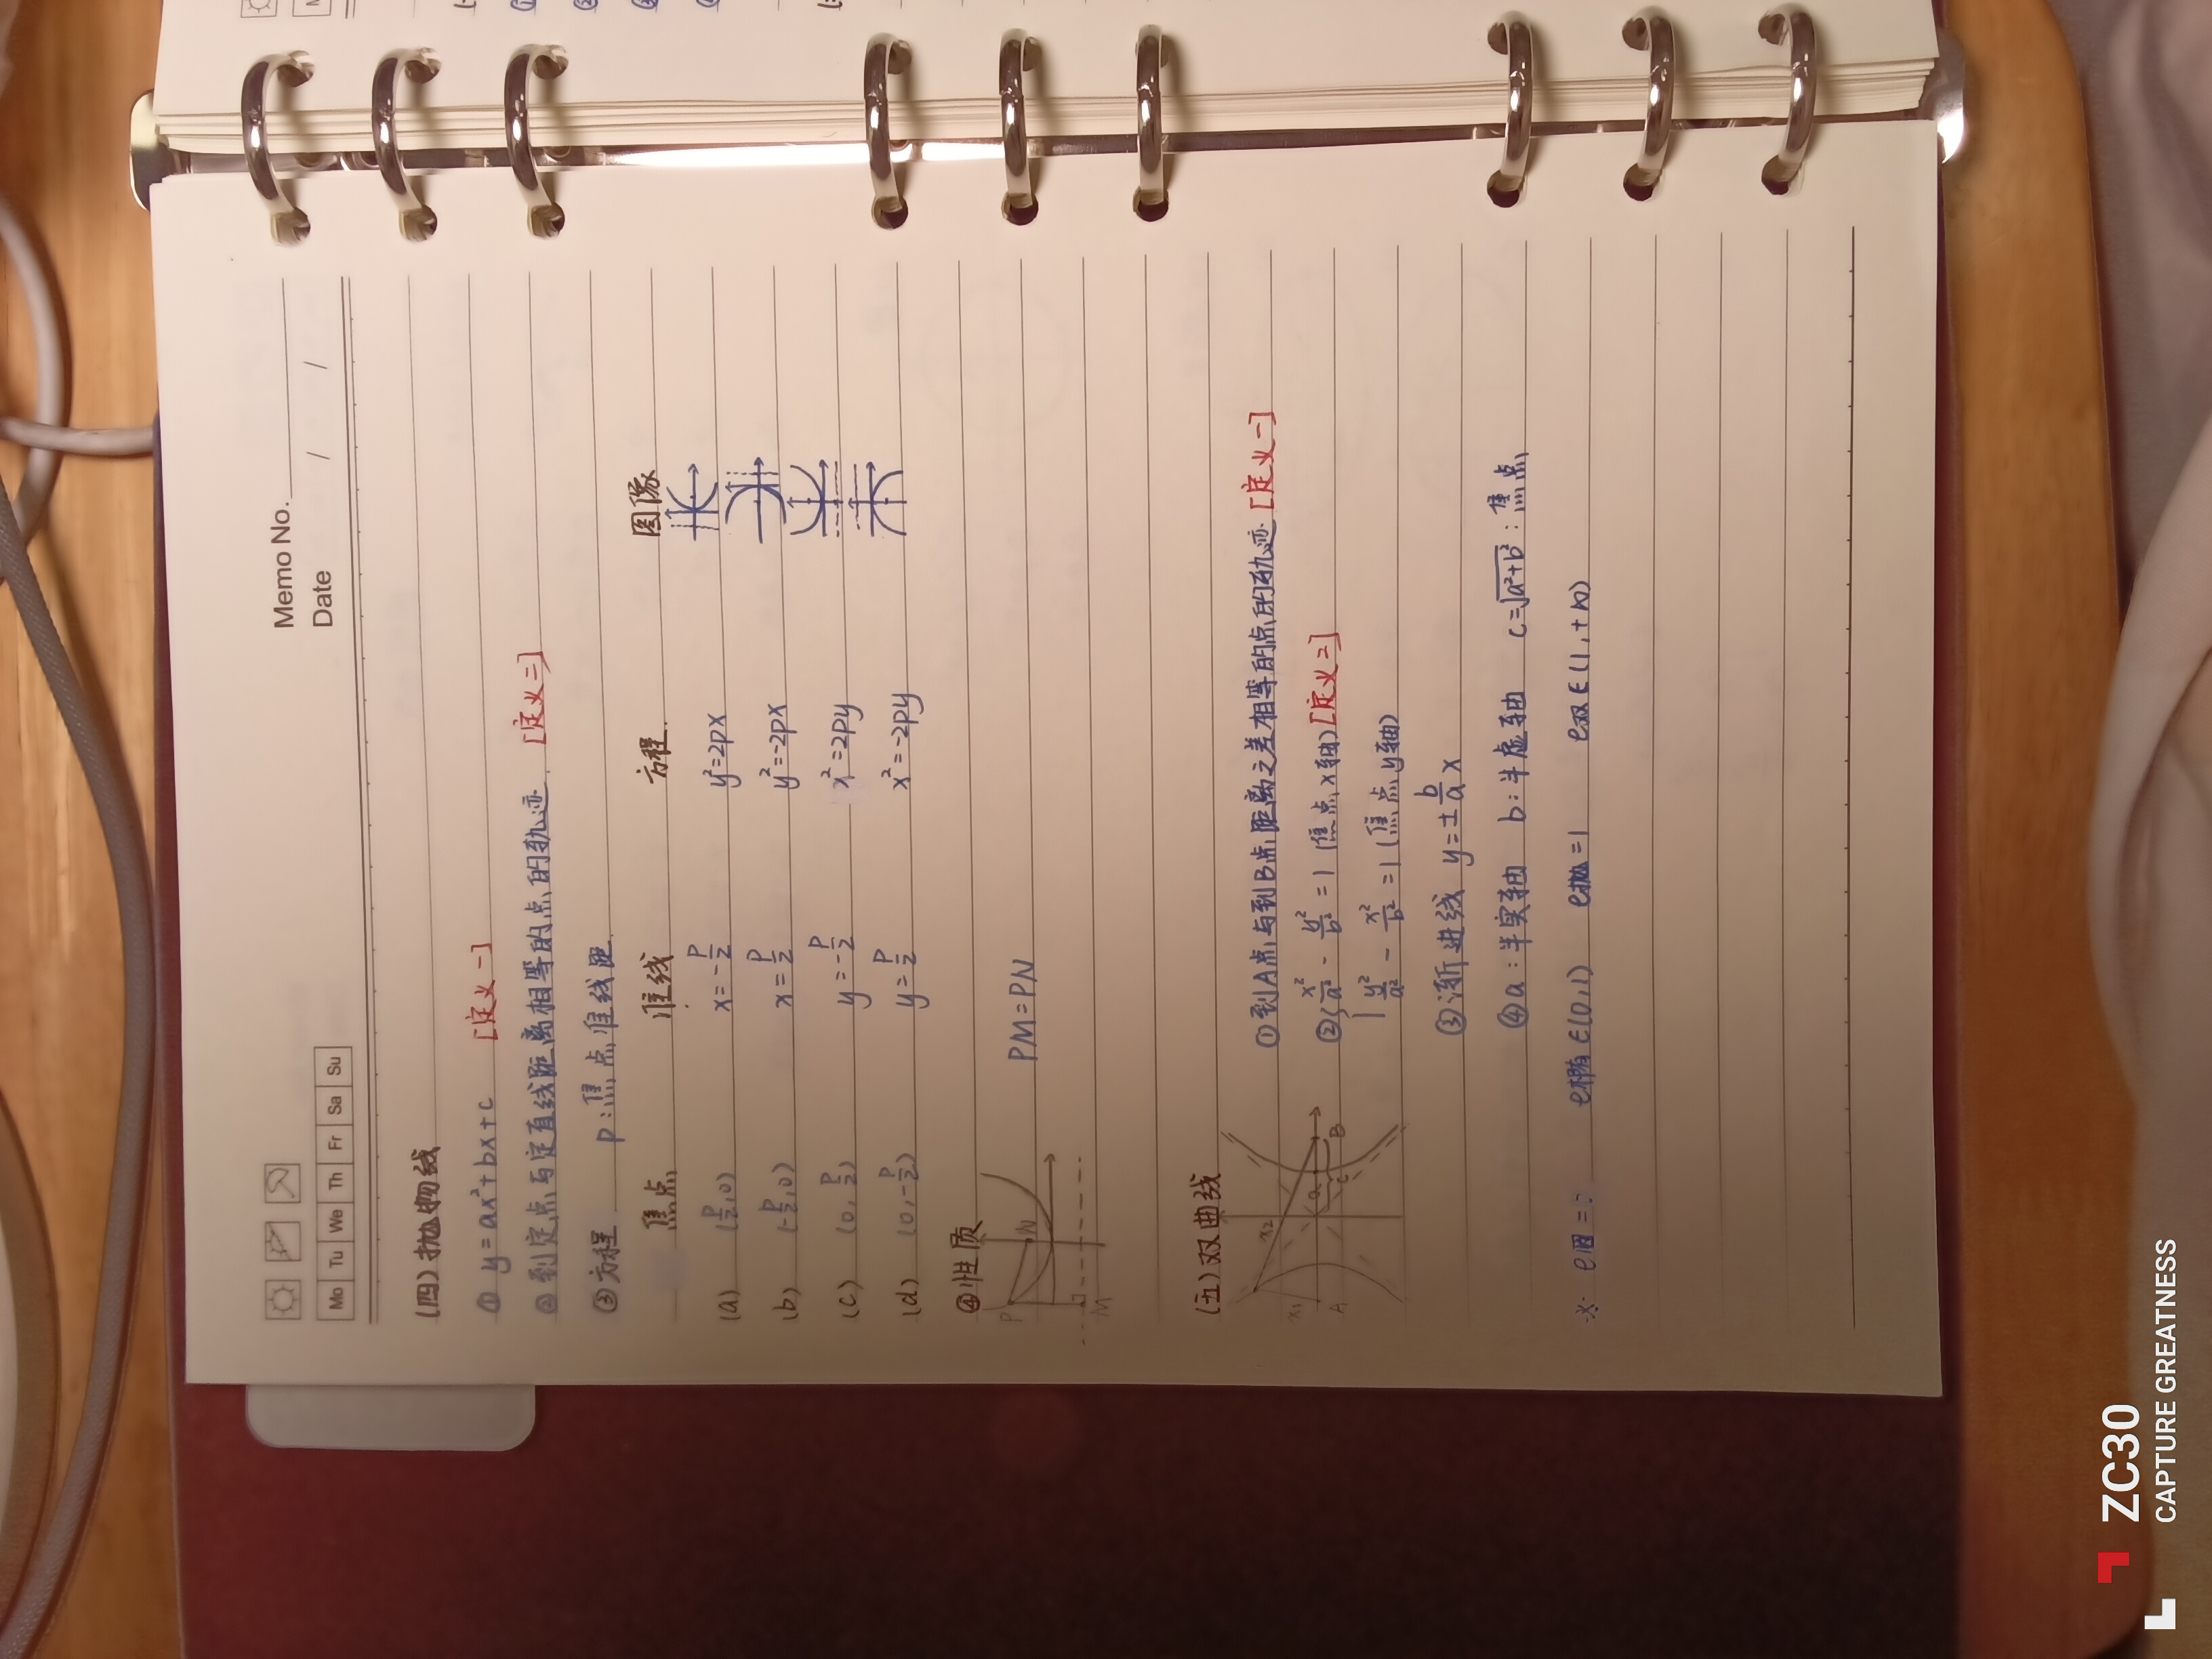 Memo No.
Mo Tu We Th Fr Sa Su
Date / /
(四)抛物线
① y=ax²+bx+c [定义一]
② 到定点与定直线距离相等的点的轨迹. [定义二]
③方程 P:焦点准线距.
焦点 准线 方程. 图像
(a) (P/2,0) x=-P/2 y²=2px
(b) (-P/2,0) x=P/2 y²=-2px
(c) (0,P/2) y=-P/2 x²=2py
(d) (0,-P/2) y=P/2 x²=-2py
④性质
P N M
PM=PN
(五)双曲线
①到A点与到B点距离之差相等的点的轨迹 [定义一]
②{x²/a² - y²/b² = 1 (焦点x轴) [定义二]
y²/a² - x²/b² = 1 (焦点y轴)
③渐进线 y=±b/a x
④a:半实轴 b:半虚轴 c=√a²+b²:焦点
x₁ x₂ A B a c
※ e圆=? e椭∈(0,1) e抛=1 e双∈(1,+∞)
ZC30
CAPTURE GREATNESS